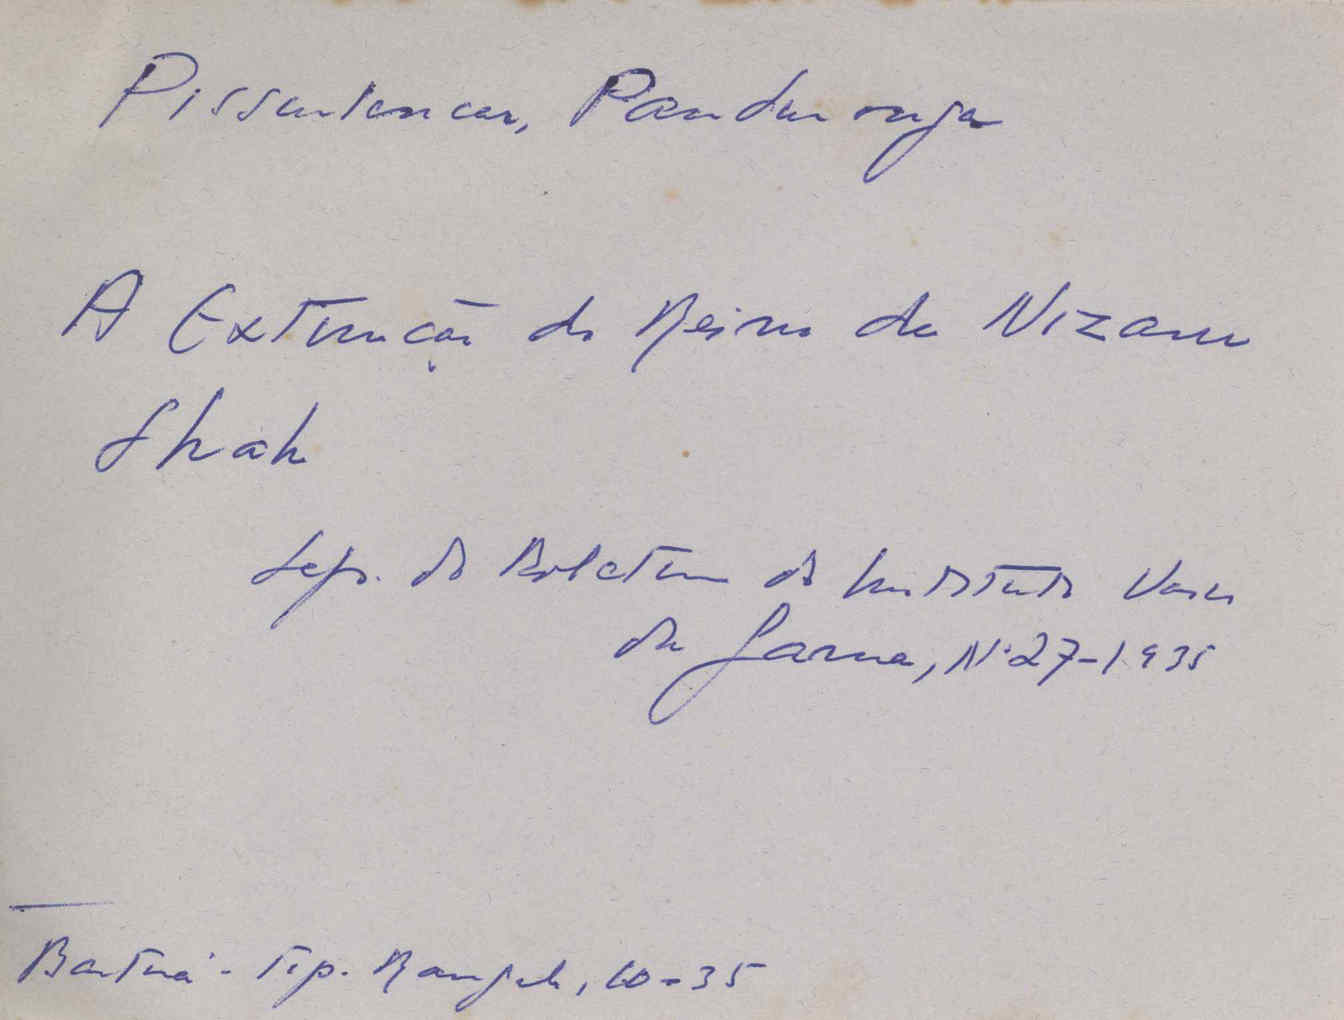 Pissurlencar, Panduronga
A Extinção do Reino de Nizam
Shah
Sep. do Boletim do Instituto Vasco
da Gama, N.º 27-1935
Bastorá - Tip. Rangel, 10-35